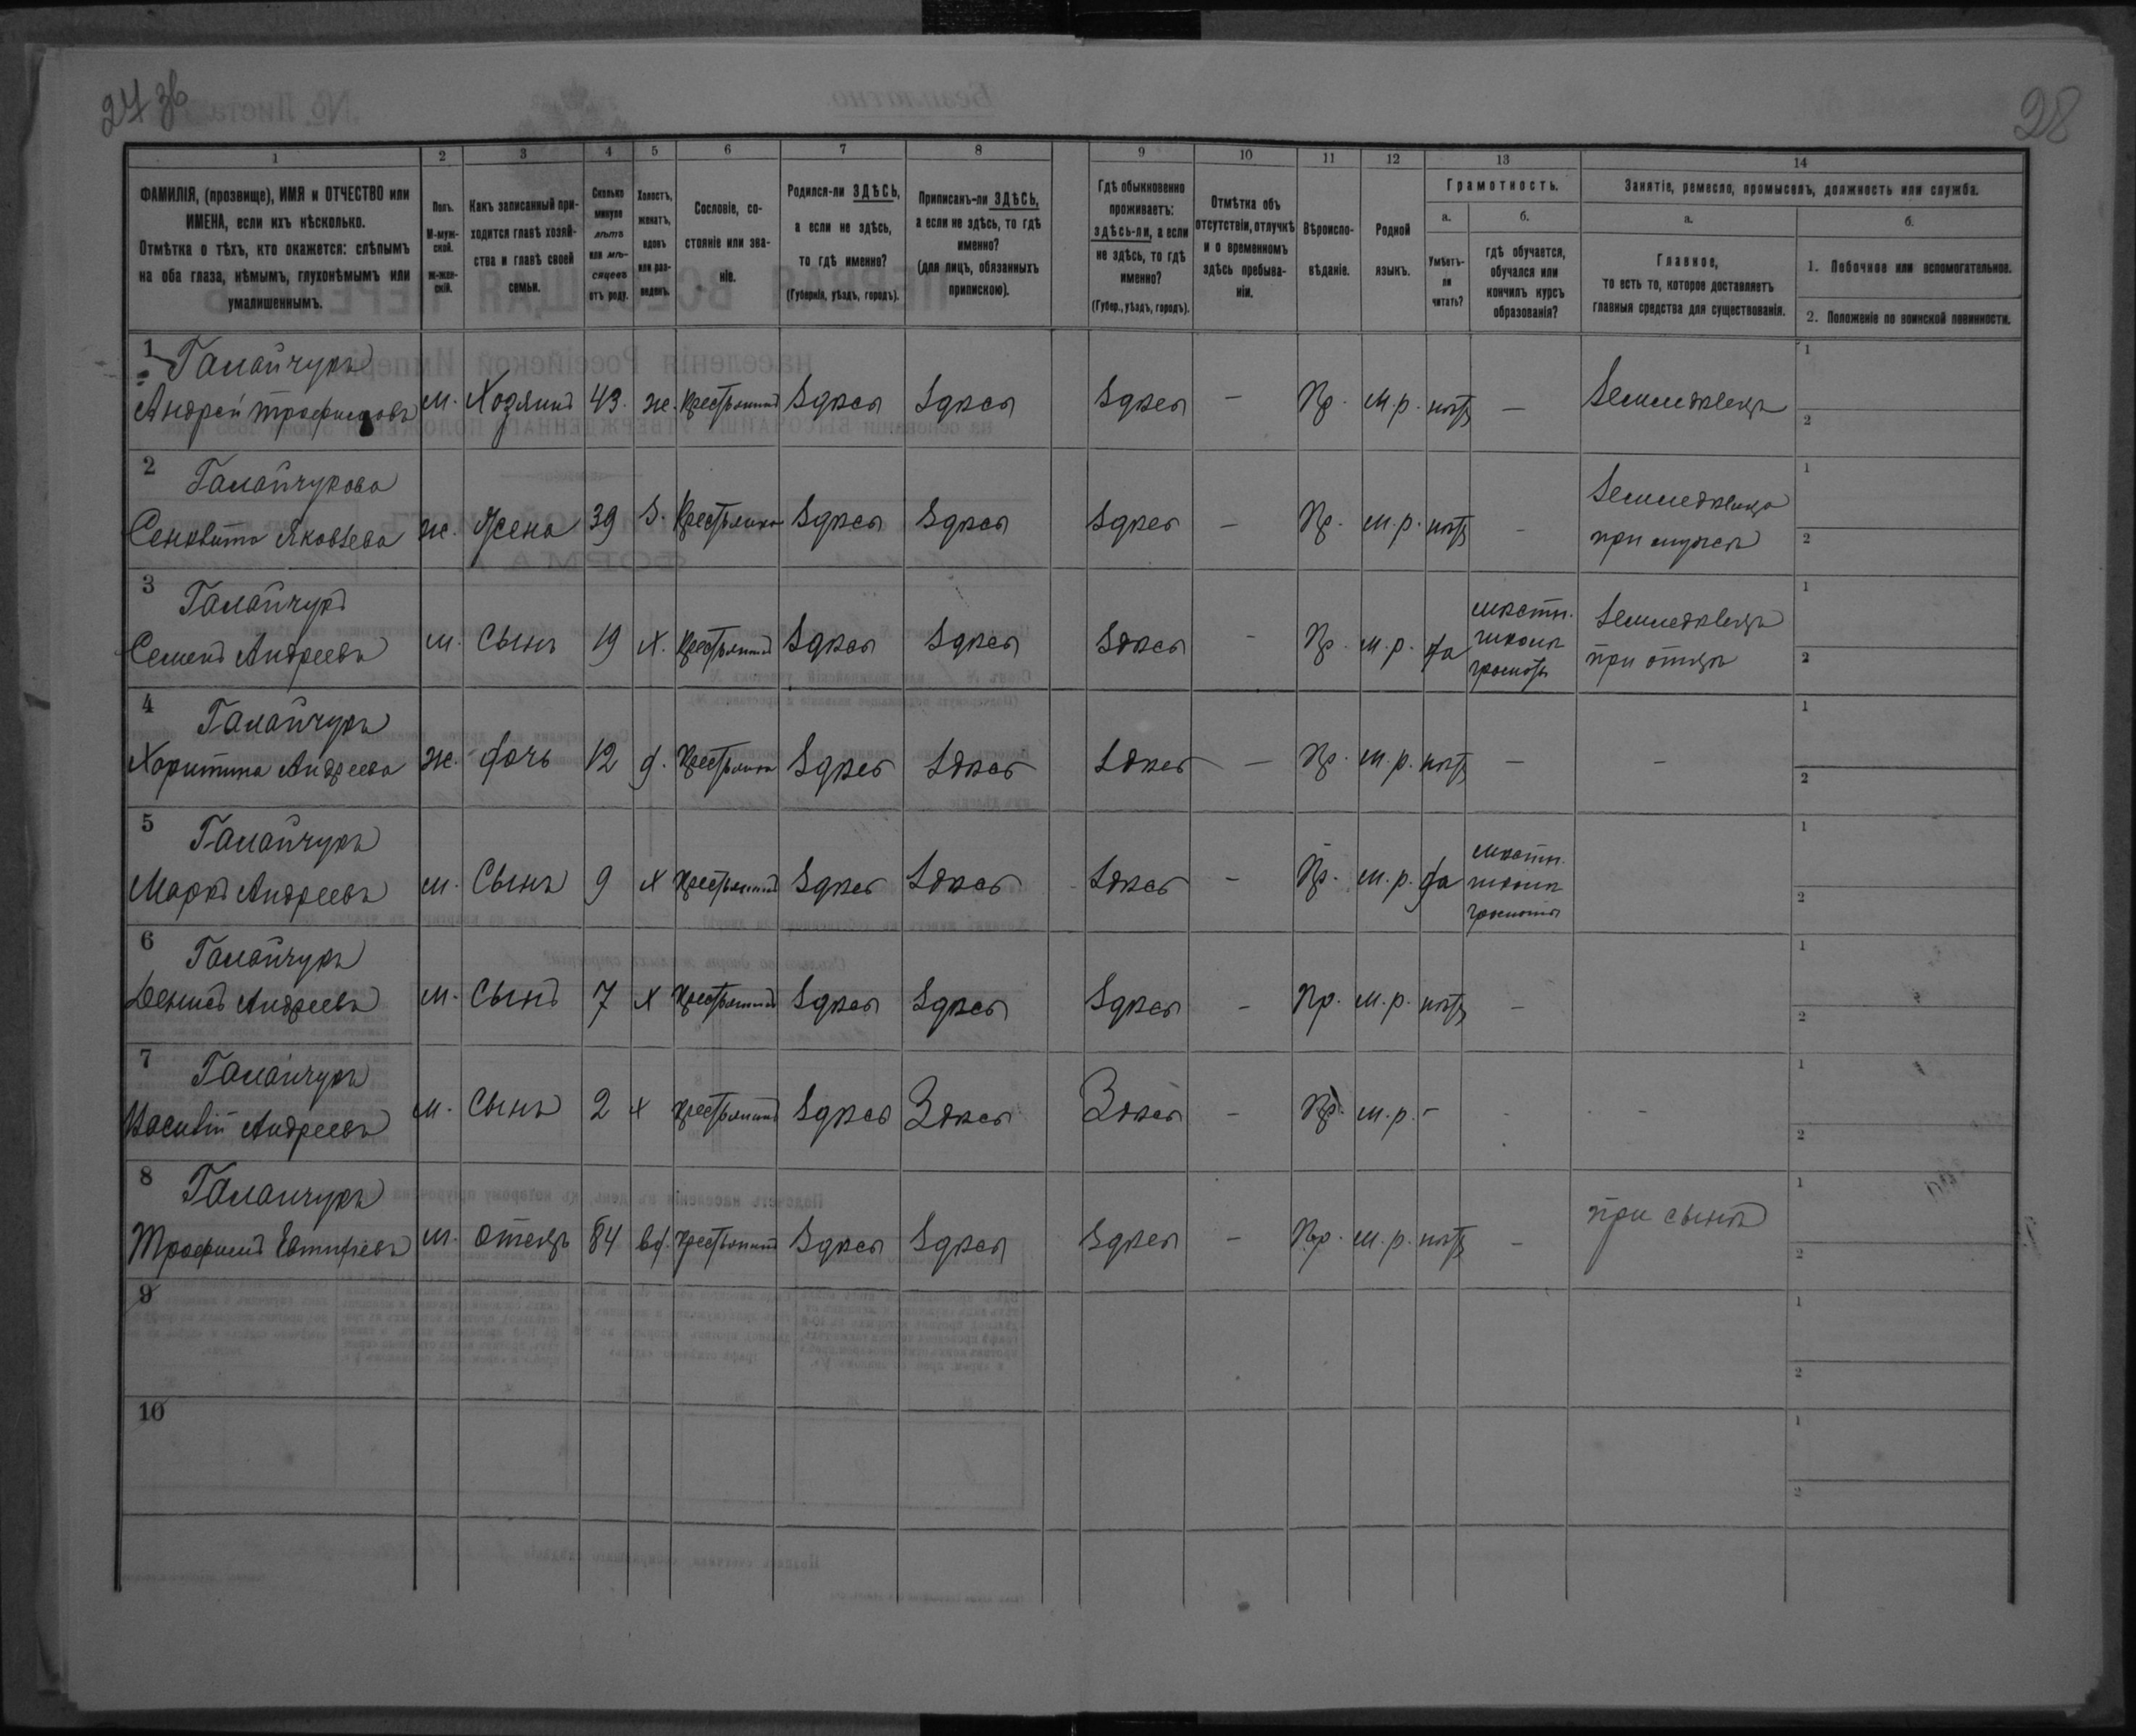 27 зв
28
1
2
3
4
5
6
7
8
9
10
11
12
13
14
ФАМИЛІЯ, (прозвище), ИМЯ и ОТЧЕСТВО или ИМЕНА, если ихъ нѣсколько.
Отмѣтка о тѣхъ, кто окажется: слѣпымъ на оба глаза, нѣмымъ, глухонѣмымъ или умалишеннымъ.
Полъ. М-муж-ской. ж-жен-скій.
Какъ записанный при-ходится главѣ хозяй-ства и главѣ своей семьи.
Сколько минуло лѣтъ или мѣ-сяцевъ отъ роду.
Холостъ, женатъ, вдовъ или раз-веденъ.
Сословіе, со-стояніе или зва-ніе.
Родился-ли ЗДѢСЬ, а если не здѣсь, то гдѣ именно? (Губернія, уѣздъ, городъ).
Приписанъ-ли ЗДѢСЬ, а если не здѣсь, то гдѣ именно? (для лицъ, обязанныхъ припискою).
Гдѣ обыкновенно проживаетъ: здѣсь-ли, а если не здѣсь, то гдѣ именно? (Губер., уѣздъ, городъ).
Отмѣтка объ отсутствіи, отлучкѣ и о временномъ здѣсь пребыва-ніи.
Вѣроиспо-вѣданіе.
Родной языкъ.
Грамотность.
а.
Умѣетъ-ли читать?
б.
гдѣ обучается, обучался или кончилъ курсъ образованія?
Занятіе, ремесло, промыселъ, должность или служба.
а.
Главное, то есть то, которое доставляетъ главныя средства для существованія.
б.
1. Побочное или вспомогательное.
2. Положеніе по воинской повинности.
1 Галайчукъ
Андрей Трофимовъ м. Хозяинъ 43. ж. Крестьянинъ Здѣсь Здѣсь Здѣсь – Пр. м.р. нѣтъ – Земледѣлецъ
1
2
2 Галайчукова
Яковлева ж. Жена 39 З. Крестьянка Здѣсь Здѣсь Здѣсь – Пр. м.р. нѣтъ – Земледѣлица
при мужѣ
1
2
3 Галайчукъ
Семенъ Андреевъ м. Сынъ 19 х. Крестьянинъ Здѣсь Здѣсь Здѣсь - Пр. м.р. да мѣстн.
школѣ
грамоты
Земледѣлецъ
при отцѣ
1
2
4 Галайчукъ
Харитина Андреева ж. дочь 12 д. Крестьянка Здѣсь Здѣсь Здѣсь – Пр. м.р. нѣтъ – –
1
2
5 Галайчукъ
Маркъ Андреевъ м. Сынъ 9 х Крестьянинъ Здѣсь Здѣсь Здѣсь - Пр. м.р. да мѣстн.
школѣ
грамоты
1
2
6 Галайчукъ
Денисъ Андреевъ м. Сынъ 7 х Крестьянинъ Здѣсь Здѣсь Здѣсь - Пр. м.р. нѣтъ –
1
2
7 Галайчукъ
Василій Андреевъ м. Сынъ 2 х Крестьянинъ Здѣсь Здѣсь Здѣсь - Пр. м.р. - - -
1
2
8 Галайчукъ
Трофимъ м. Отецъ 84 вд. Крестьянинъ Здѣсь Здѣсь Здѣсь - Пр. м.р. нѣтъ – при сынѣ
1
2
9
1
2
10
1
2